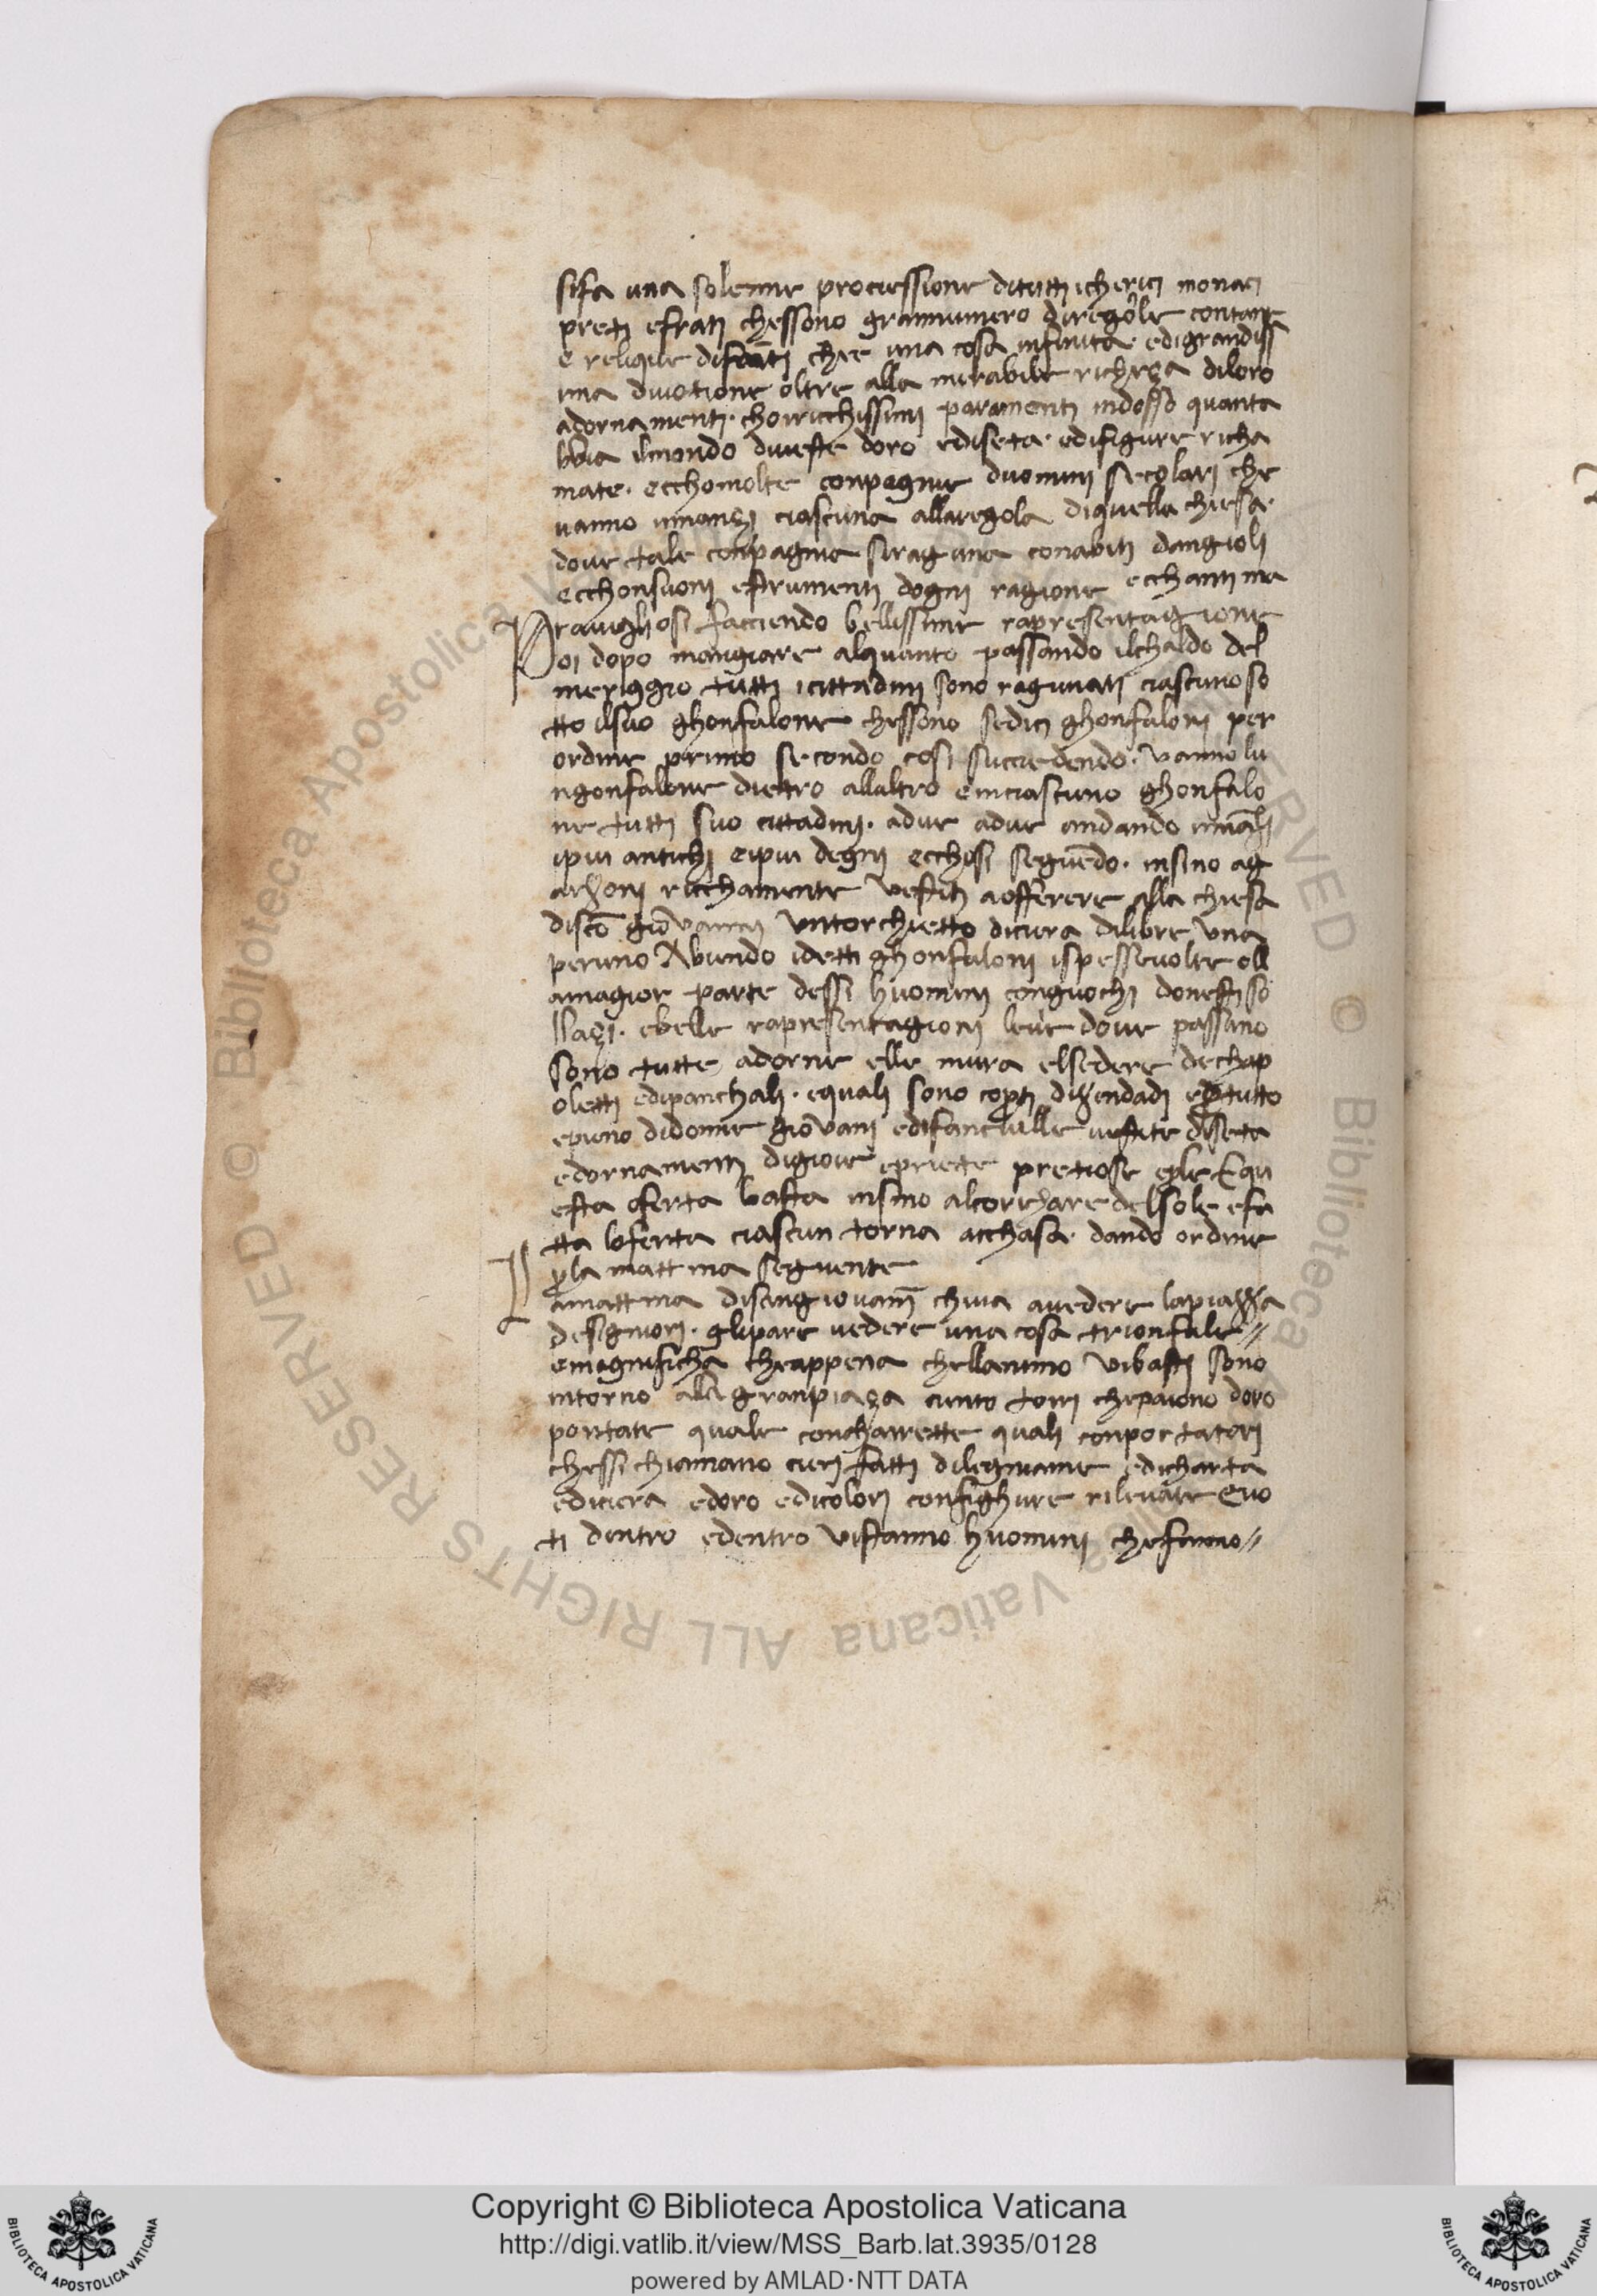 sifa una solenne prociessione ditutti icherici monaci
preti efrati chessono grannumero diregole contante
e reliquie disanti che una cosa infinita · edigrandiss
ima divotione oltre alla merabile richeça diloro
adornamenti · chorricchissimi paramenti indosso quanta
bbia ilmondo diveste doro ediseta · edifigure richa
mate · ecchomolte conpagnie duomini secolari che
vanno innançi ciascuna allaregola diquella chiesa ·
dove tale conpagnia siraguna conabiti dangioli
ecchonsuoni estrumenti dogni ragione ecchanti ma
ravigliosi facciendo bellissime rapresentagione
Poi dopo mangiare alquanto passando ilchaldo del
meriggio tutti icittadini sono ragunati ciascuno so
tto ilsuo ghonfalone chessono sedici ghonfaloni per
ordine primo secondo cosi succiedendo · vanno lu
ngonfalone dietro allaltro einciascuno ghonfalo
ne tutti suo cittadini · adue adue andando innāzi
ipiu antichi eipiu degni ecchosi seguēdo · insino ag
arzoni ricchamente vestiti aofferere alla chiesa
discō giovanni untorchietto dicera dilibre una
peruno Abiendo idetti ghonfaloni ispessevolte oll
amagior parte dessi huomini conguochi donesti so
llaçi · ebelle rapresentagioni levie dove passano
sono tutte adorne elle mura elsedere dechap
oletti edipanchali · equali sono copti dizendadi eptutto
epieno didonne giovani edifanciulle vestite diseta
edornamenti digioie epriete pretiose eple Equ
esta oferta basta insino alcorichare delsole efa
tta loferta ciascun torna acchasa · dando ordine
pla mattina seguente
Lamattina disangiovanī chiva avedere lapiazza
designiori · glipare vedere una cosa trionfale //
emagnificha cheappena chellanimo vibasti sono
intorno alla granpiaça ciento torri chepaiono doro
portate quale concharrette quali conportatori
chessi chiamano cieri fatti dilegniame edicharta
ediciera edoro edicolori confighure rilevate Evo
ti dentro edentro vistanno huomini chefanno //
Copyright © Biblioteca Apostolica Vaticana
http://digi.vatlib.it/view/MSS_Barb.lat.3935/0128
powered by AMLAD·NTT DATA